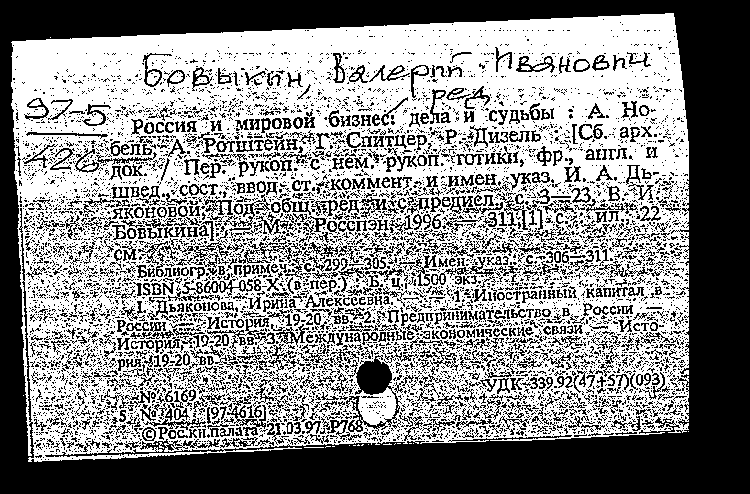 Бовыкин, Валерий Иванович
ред
97-5
426
Россия и мировой бизнес: дела и судьбы : А. Но-
бель, А. Ротштейн, Г. Спитцер, Р. Дизель : [Сб. арх.
док. / Пер. рукоп. с нем., рукоп. готики, фр., англ. и
швед., сост., ввод. ст., коммент. и имен. указ. И. А. Дь-
яконовой; Под общ. ред. и с предисл., с. 3—23, В. И.
Бовыкина]. — М. : Росспэн, 1996. — 311,[1] с. : ил., 22
см.
Библиогр. в примеч.: с. 299—305. — Имен. указ.: с. 306—311.
ISBN 5-86004-058-X (в пер.) : Б. ц. 1500 экз.
I. Дьяконова, Ирина Алексеевна. — 1. Иностранный капитал в
России — История, 19-20 вв. 2. Предпринимательство в России —
История, 19-20 вв. 3. Международные экономические связи — Исто-
рия, 19-20 вв.
УДК 339.92(47+57)(093)
№ 6169
5. № 404 [97-4616]
© Рос. кн. палата 21.03.97. Р768